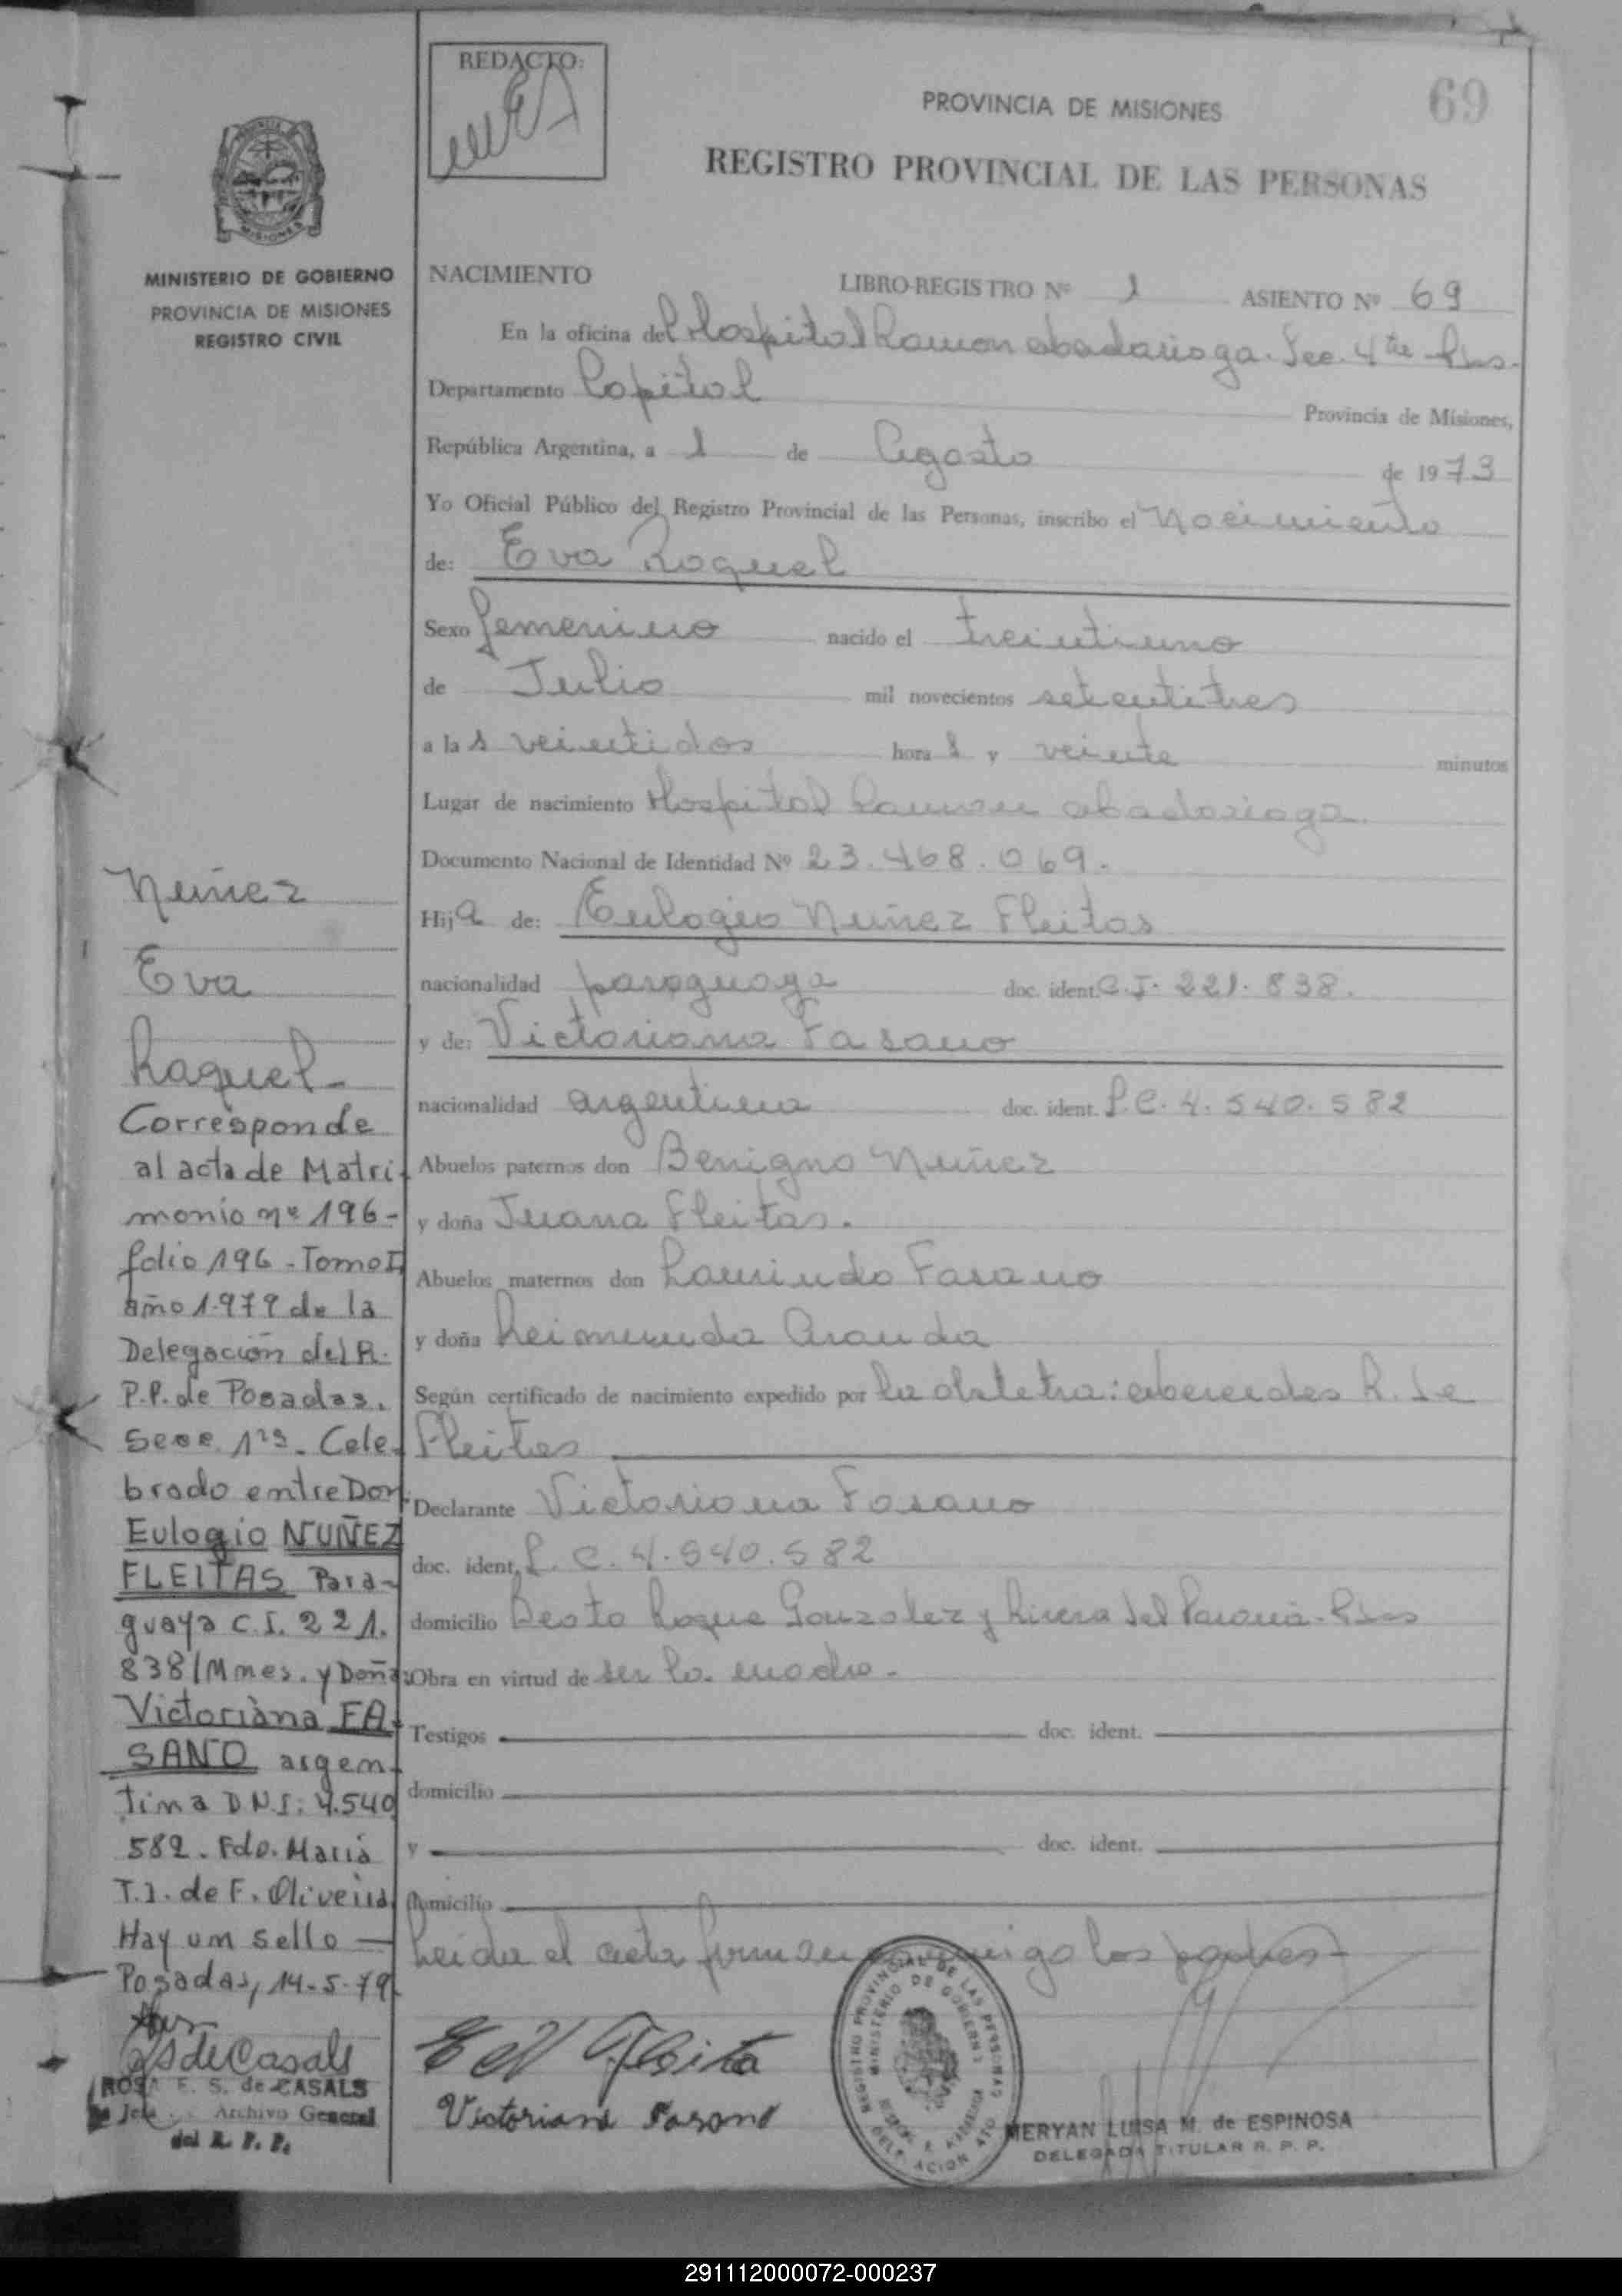 REDACTO:
69
PROVINCIA DE MISIONES
REGISTRO PROVINCIAL DE LAS PERSONAS
MISIONES
MINISTERIO DE GOBIERNO
PROVINCIA DE MISIONES
REGISTRO CIVIL
NACIMIENTO LIBRO-REGISTRO Nº 1 ASIENTO Nº 69
En la oficina del Hospital Ramon Abadarioga. Sec. 4ta Pdas.
Departamento Capital Provincia de Misiones,
República Argentina, a 1 de Agosto de 1973
Yo Oficial Público del Registro Provincial de las Personas, inscribo el Nacimiento
de: Eva Raquel
Sexo femenino nacido el treintiuno
de Julio mil novecientos setentitres
a las veintidos horas y veinte minutos
Lugar de nacimiento Hospital Ramon Abadarioga.
Documento Nacional de Identidad Nº 23.468.069.
Hija de: Eulogio Nuñez Fleitas
nacionalidad paraguaya doc. ident. C.I. 221.838.
y de: Victoriana Fasano
nacionalidad argentina doc. ident. L.C. 4.540.582
Abuelos paternos don Benigno Nuñez
y doña Juana Fleitas.
Abuelos maternos don Laurindo Fasano
y doña Reimunda Aranda
Según certificado de nacimiento expedido por la obstetra: R. de
Fleitas
Declarante Victoriana Fasano
doc. ident. L.C. 4.540.582
domicilio Beato Roque Gonzalez y Rivera del Paraná - Pdas
Obra en virtud de ser la madre.
Testigos doc. ident.
domicilio
y doc. ident.
domicilio
Leida el acta firman conmigo los padres-
Victoriana Fasano
REGISTRO PROVINCIAL DE LAS PERSONAS
MINISTERIO DE GOBIERNO
MERYAN LUISA M. de ESPINOSA
DELEGADA TITULAR R. P. P.
Nuñez
Eva
Raquel-
Corresponde
al acta de Matri-
monio nº 196-
folio 196 - Tomo I
año 1.979 de la
Delegación del R.
P.P. de Posadas.
Secc. 1ra. Cele-
brado entre Don:
Eulogio NUÑEZ
FLEITAS Para-
guaya C.I. 221.
838/Mnes. y Doña:
Victoriana FA-
SANO argen-
tina D.N.I: 4.540
582. Fdo. María
T.J. de F. Oliveira
Hay un sello —
Posadas, 14-5-79.
ROSA F. S. de CASALS
Jefe Archivo General
del R. P. P.
291112000072-000237